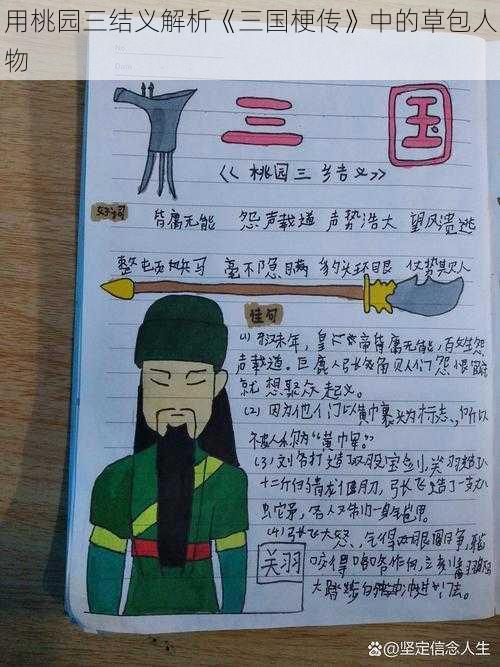 用桃园三结义解析《三国梗传》中的草包人
物
No.
Date
三国
《桃园三结义》
好词
昏庸无能 怨声载道 声势浩大 望风溃逃
整屯兵马 毫不隐瞒 豹头环眼 仗势欺人
佳句
(1) 东汉末年，皇帝昏庸无能，百姓怨
声载道。巨鹿人张角见人们怨恨官府
就想聚众起义。
(2) 因为他们以黄巾裹头为标志，所以
被人称为“黄巾军。”
(3) 刘备打造双股宝剑，关羽造
十二斤的青龙偃月刀，张飞造了一支
蛇矛，各人又制
(4) 张飞大怒，气得双眼圆睁，
咬得
大踏步
关羽
百家号@坚定信念人生